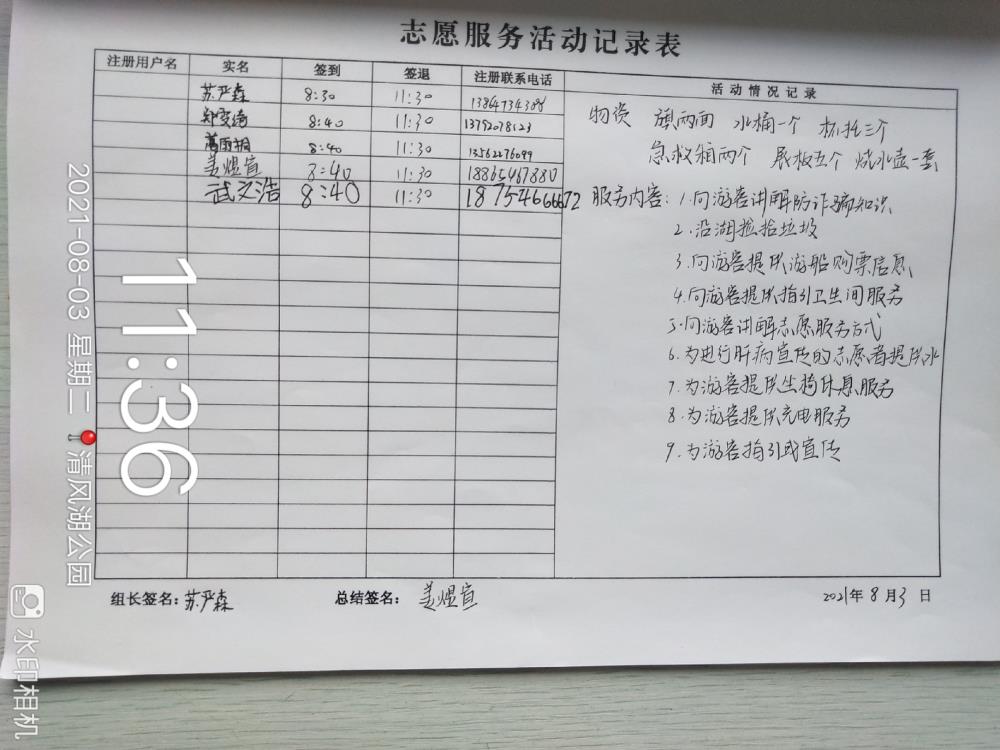 志愿服务活动记录表
注册用户名 实名 签到 签退 注册联系电话 活动情况记录
苏严森 8:30 11:30
8:40 11:30 13792078123
8:40 11:30 13562276099
姜煜宣 8:40 11:30 18865467880
武文浩 8:40 11:30
物资 旗两面 水桶一个 杯托三个
急救箱两个 展板五个 烧水壶一套
服务内容: 1.向游客讲解防诈骗知识
2.沿湖捡拾垃圾
3.向游客提供游船购票信息
4.向游客提供指引卫生间服务
5.向游客讲解志愿服务方式
6.为进行肝病宣传的志愿者提供水
7.为游客提供坐椅休息服务
8.为游客提供充电服务
9.为游客指引或宣传
组长签名: 苏严森 总结签名: 姜煜宣 2021年8月3日
11:36
2021-08-03 星期二 清风湖公园
水印相机